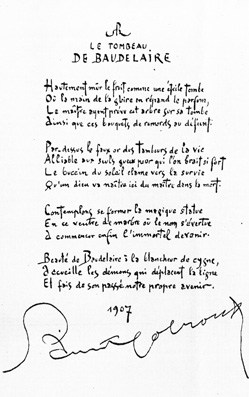 LE TOMBEAU
DE BAUDELAIRE
Hautement mûr le fruit comme une étoile tombe
Où la main de la gloire en répand le parfum,
Le maître ayant privé cet arbre sur sa tombe
Ainsi que ces bouquets de remords au défunt.
Par-dessus le faux or des tanteurs de la vie
Alliable aux seuls queux pour qui l'on brait si fort
Le buccin du soleil clame vers la survie
Qu'un dieu va naître ici du maître dans la mort.
Contemplons se former la magique statue
En ce ventre de marbre où le nom s'évertue
À commencer enfin l'immortel devenir.
Beauté de Baudelaire à la blancheur de cygne,
Accueille les démons qui déplacent la ligne
Et fais de son passé notre propre avenir.
1907